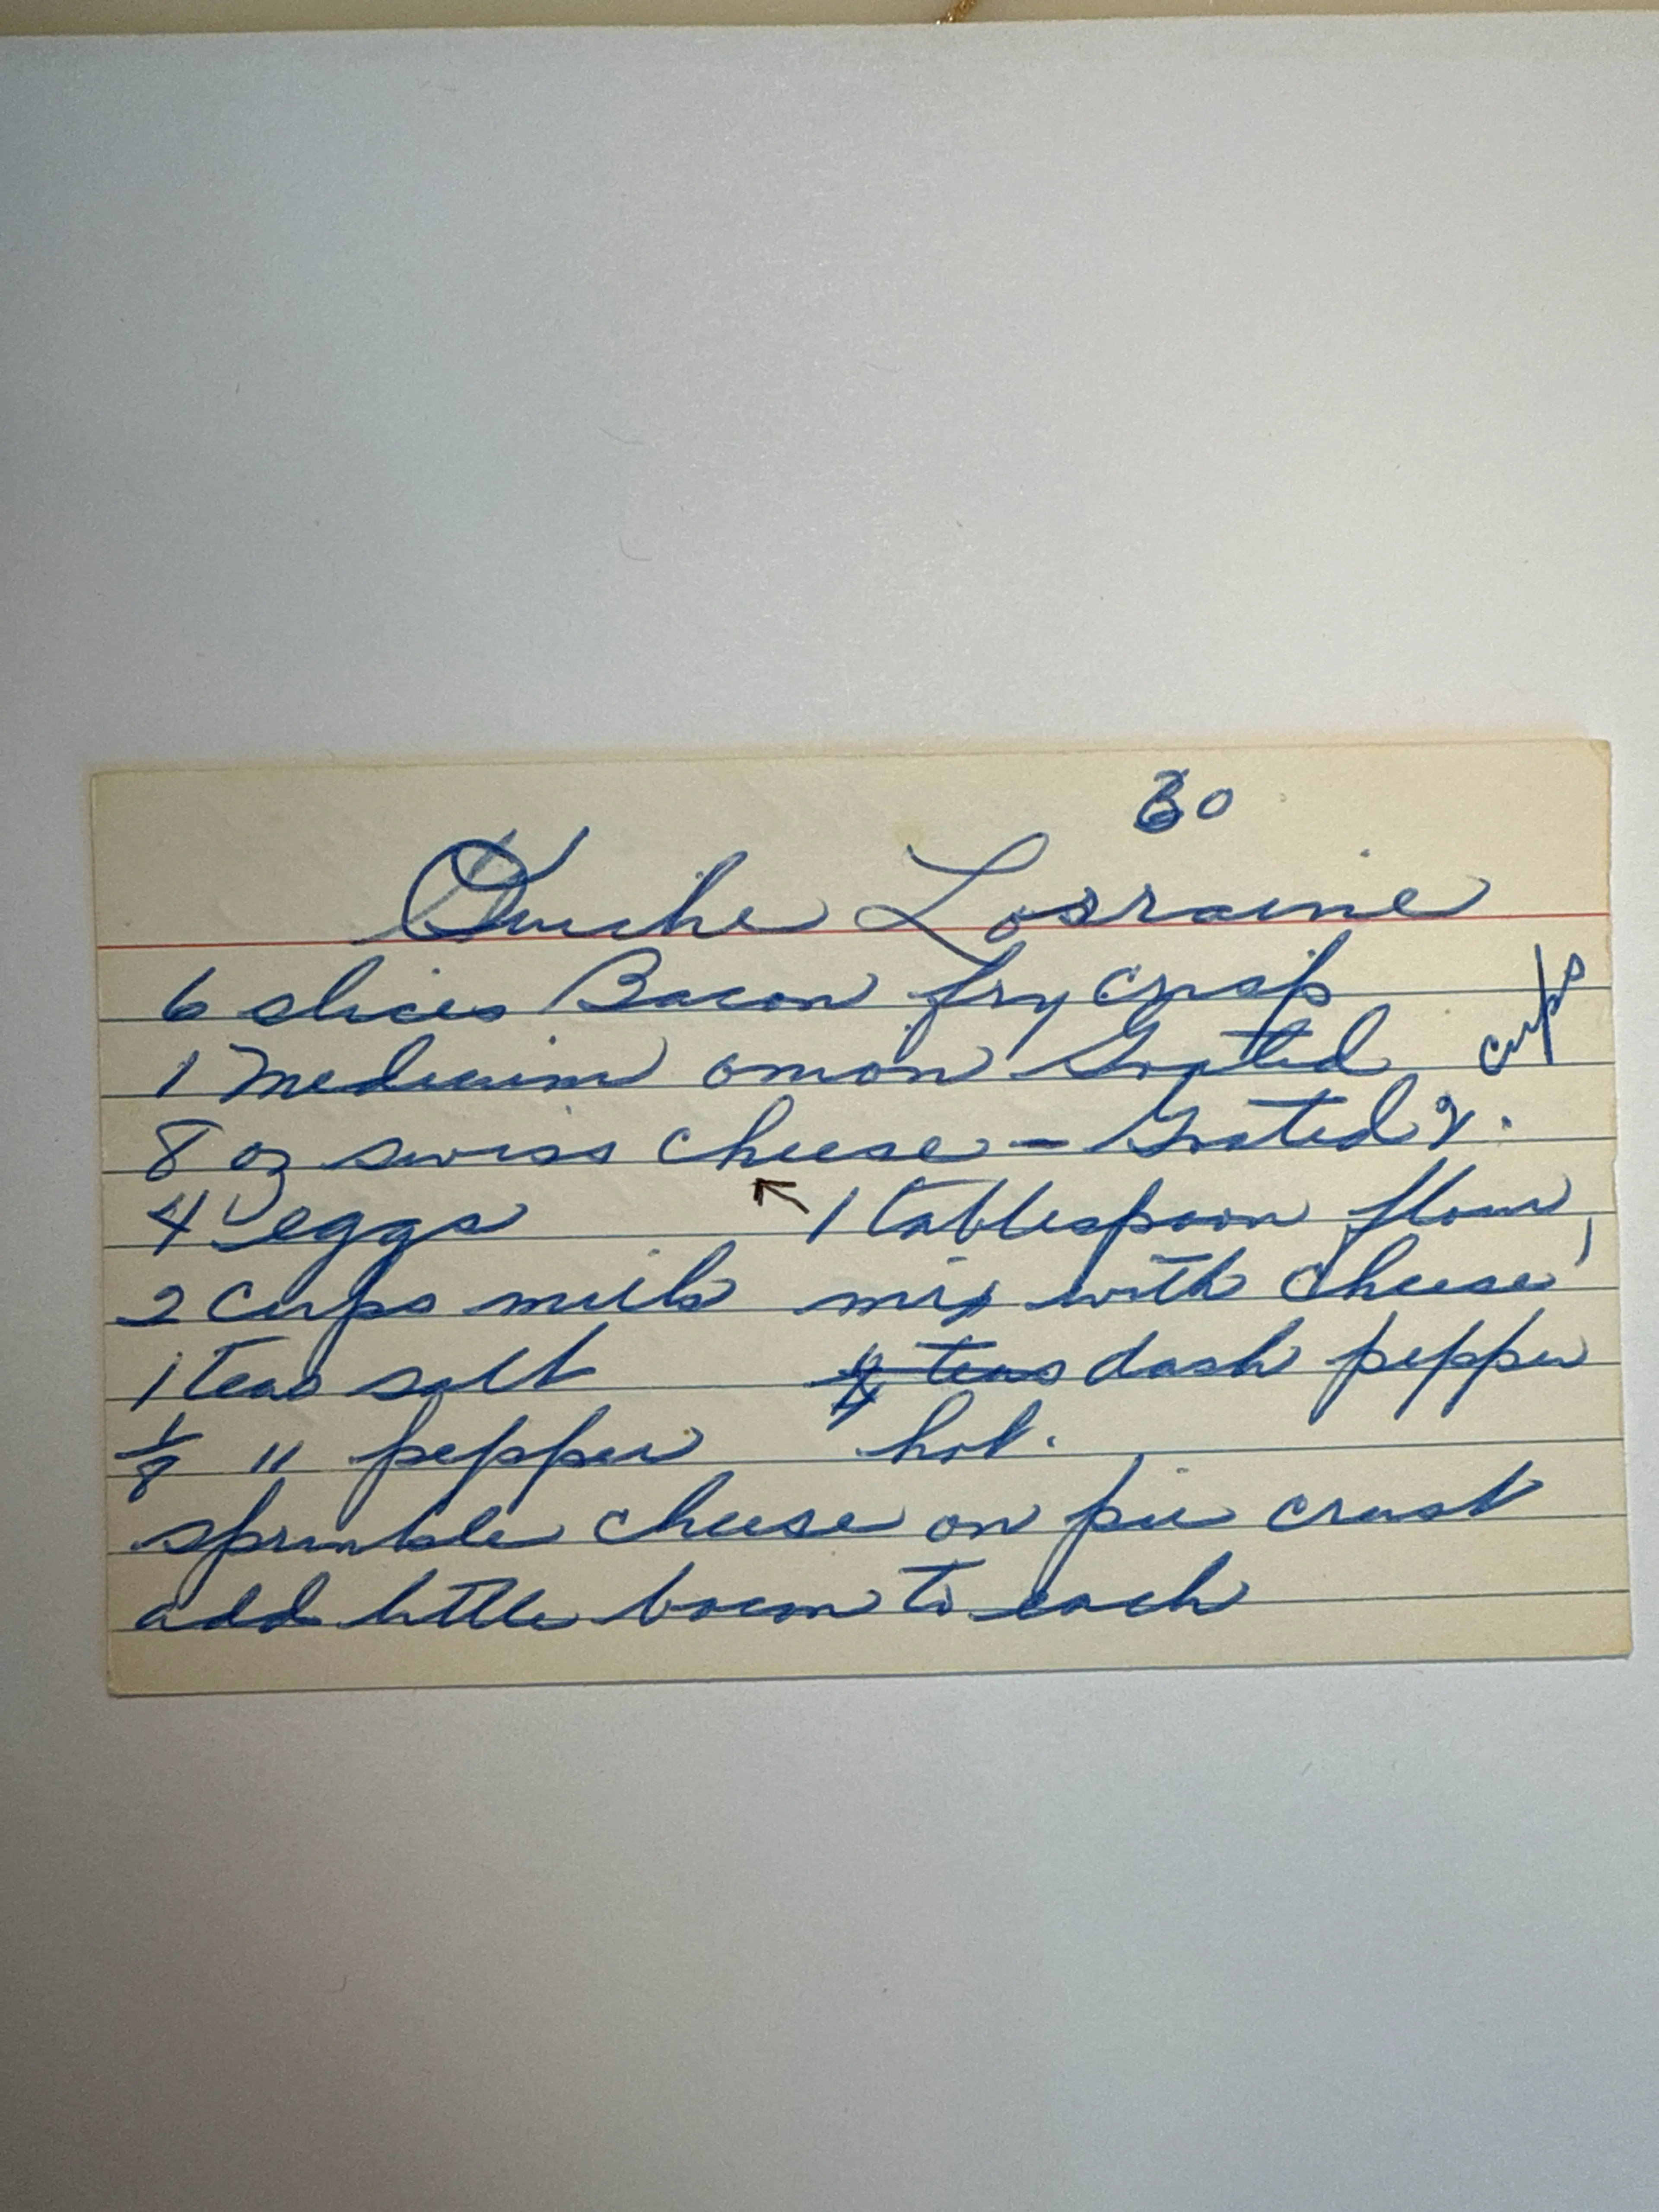 30
Quiche Lorraine
6 slices Bacon fry crisp
1 Medium onion Grated
8 oz swiss cheese - Grated 2. cups
4 eggs 1 tablespoon flour,
2 cups milk mix with cheese
1 teas salt teas dash pepper
1/8 " pepper hot.
sprinkle cheese on pie crust
add little bacon to each